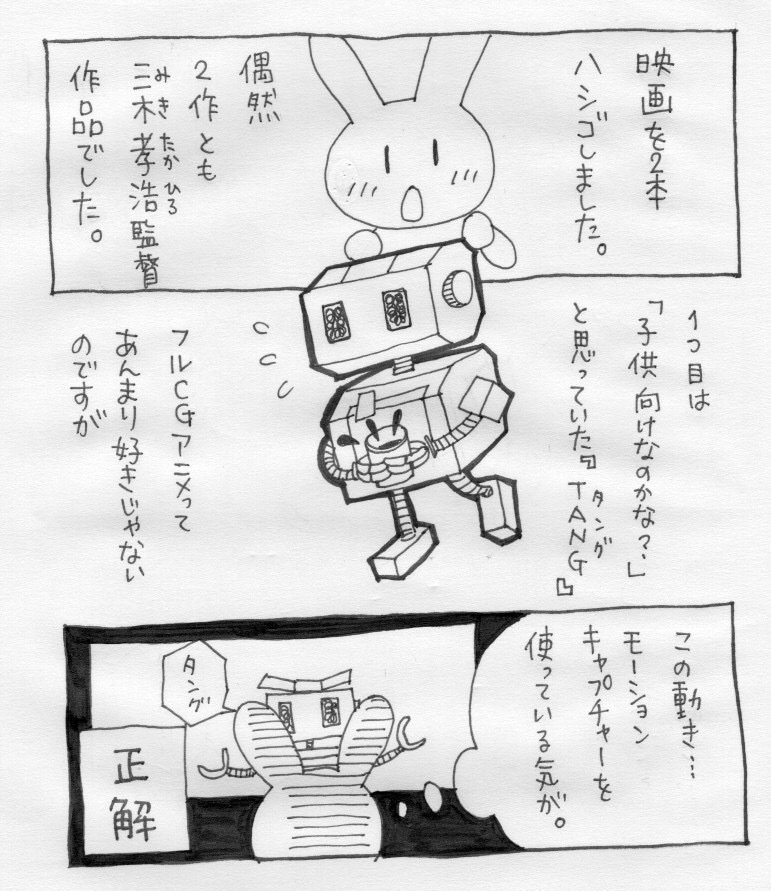 映画を2本
ハシゴしました。
偶然
2作とも
三木孝浩監督
みき たかひろ
作品でした。
1つ目は
「子供向けなのかな？」
と思っていた『TANG』
タング
フルCGアニメって
あんまり好きじゃない
のですが
この動き…
モーション
キャプチャーを
使っている気が。
タング
正解